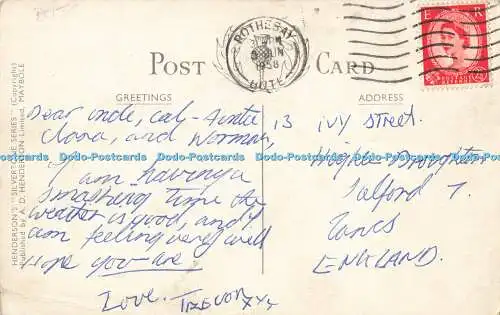 ROTHESAY
JUN
1958
BUTE
E R
POSTAGE
POST CARD
GREETINGS
ADDRESS
HENDERSON'S "SILVERTONE SERIES" - (Copyright)
Published by A. D. HENDERSON Limited, MAYBOLE
Dear uncle, cal- Auntie
Clara, and Norman,
I am having a
smashing time the
weather is good, and I
am feeling very well
Hope you are,
Love. TREVOR xxx
13 IVY Street.
Higher Broughton
Salford 7.
Lancs
ENGLAND.
Dodo-Postcards Dodo-Postcards Dodo-Postcards Dodo-Postcards